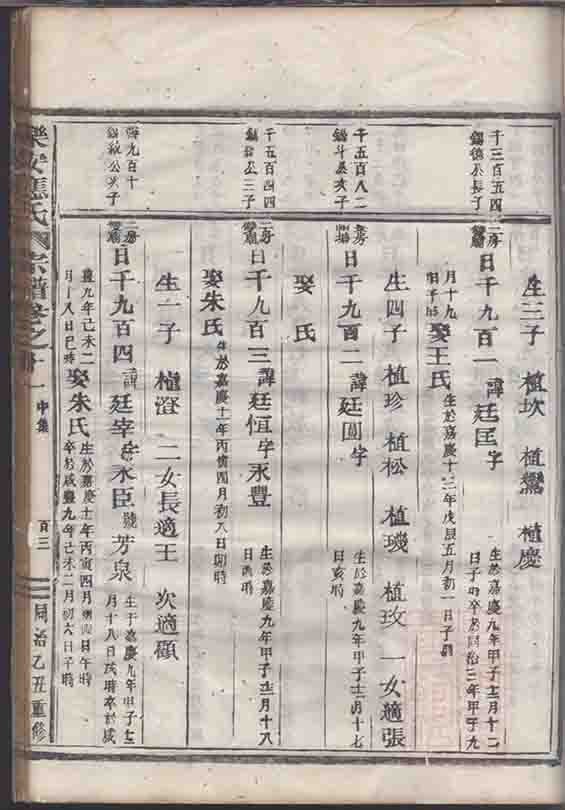 生三子 植坎 植鸞 植慶
千三百五四
錫德公長子
二房
日千九百一 諱廷匡 字
生於嘉慶九年甲子十二月十二
日子時卒於同治三年甲子九
月十九
日子時
娶王氏
生於嘉慶十三年戊辰五月初一日子時
生四子 植珍 植松 植璣 植玫 一女適張
千五百八二
錫斗公次子
日千九百二 諱廷圓 字
生於嘉慶九年甲子十二月十七
日亥時
娶 氏
千五百四四
公三子
二房
日千九百三 諱廷恒 字永豐
生於嘉慶九年甲子十二月十八
日 時
娶朱氏
生於嘉慶十一年丙寅四月初八日卯時
生一子 植澄 二女長適王 次適顧
九百十
錫 公次子
二房
日千九百四 諱廷宰 字永臣 號芳泉
生于嘉慶九年甲子十二
月十八日戌時卒於咸
豐九年己未二
月十八日巳時
娶朱氏
生於嘉慶十一年丙寅四月 日午時
卒於咸豐九年己未二月初六日子時
樂安 氏宗譜卷之 十一 中集 百三 同治乙丑重修